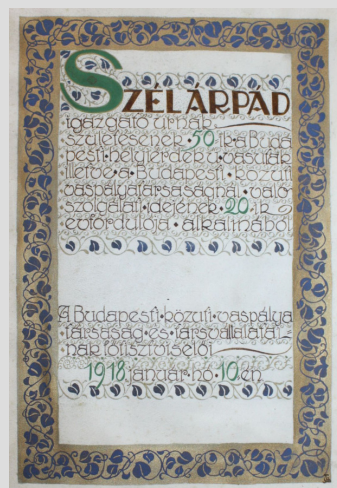 SZÉL ÁRPÁD
igazgató úrnak
születésének · 50 · ik a Buda
pesti · helyiérdekű · vasutak
illetve · a · Budapesti · közúti
vaspályatársaságnál · való
szolgálati · idejének · 20 · ik
évfordulója · alkalmából
A Budapesti · közúti · vaspálya
társaság · és · társvállalatai
nak főtisztviselői
1918 január · hó · 10 én